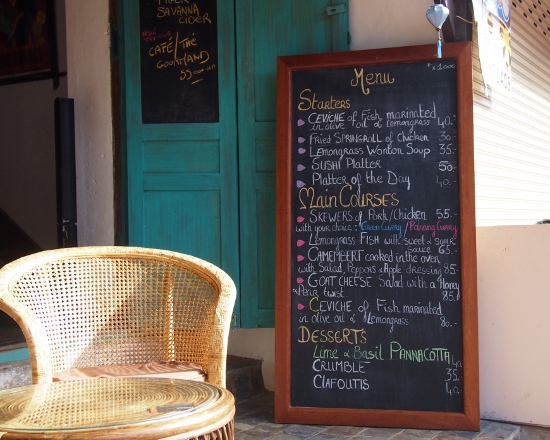 TIGER
SAVANNA
CIDER
CAFÉ/THÉ
GOURMAND
55000 KIP
Menu
+ x 1000
Starters
CEVICHE of Fish marinated
in olive oil of Lemongrass 40.-
FRIED SPRINGROLL of Chicken 30.-
LEMONGRASS Wonton Soup 35.-
SUSHI Platter 50.-
Platter of the Day 40.-
MAIN COURSES
SKEWERS of Pork/Chicken 55.-
with your choice : Green Curry / Panang Curry
Lemongrass FISH with sweet & sour
sauce 65.-
CAMEMBERT cooked in the oven
with Salad, Peppers & Apple dressing 85.-
GOAT CHEESE Salad with a Honey
& Pear twist 85.-
CEVICHE of Fish marinated
in olive oil of Lemongrass 80.-
DESSERTS
Lime & Basil PANNACOTTA 40
CRUMBLE 35.
CLAFOUTIS 40.